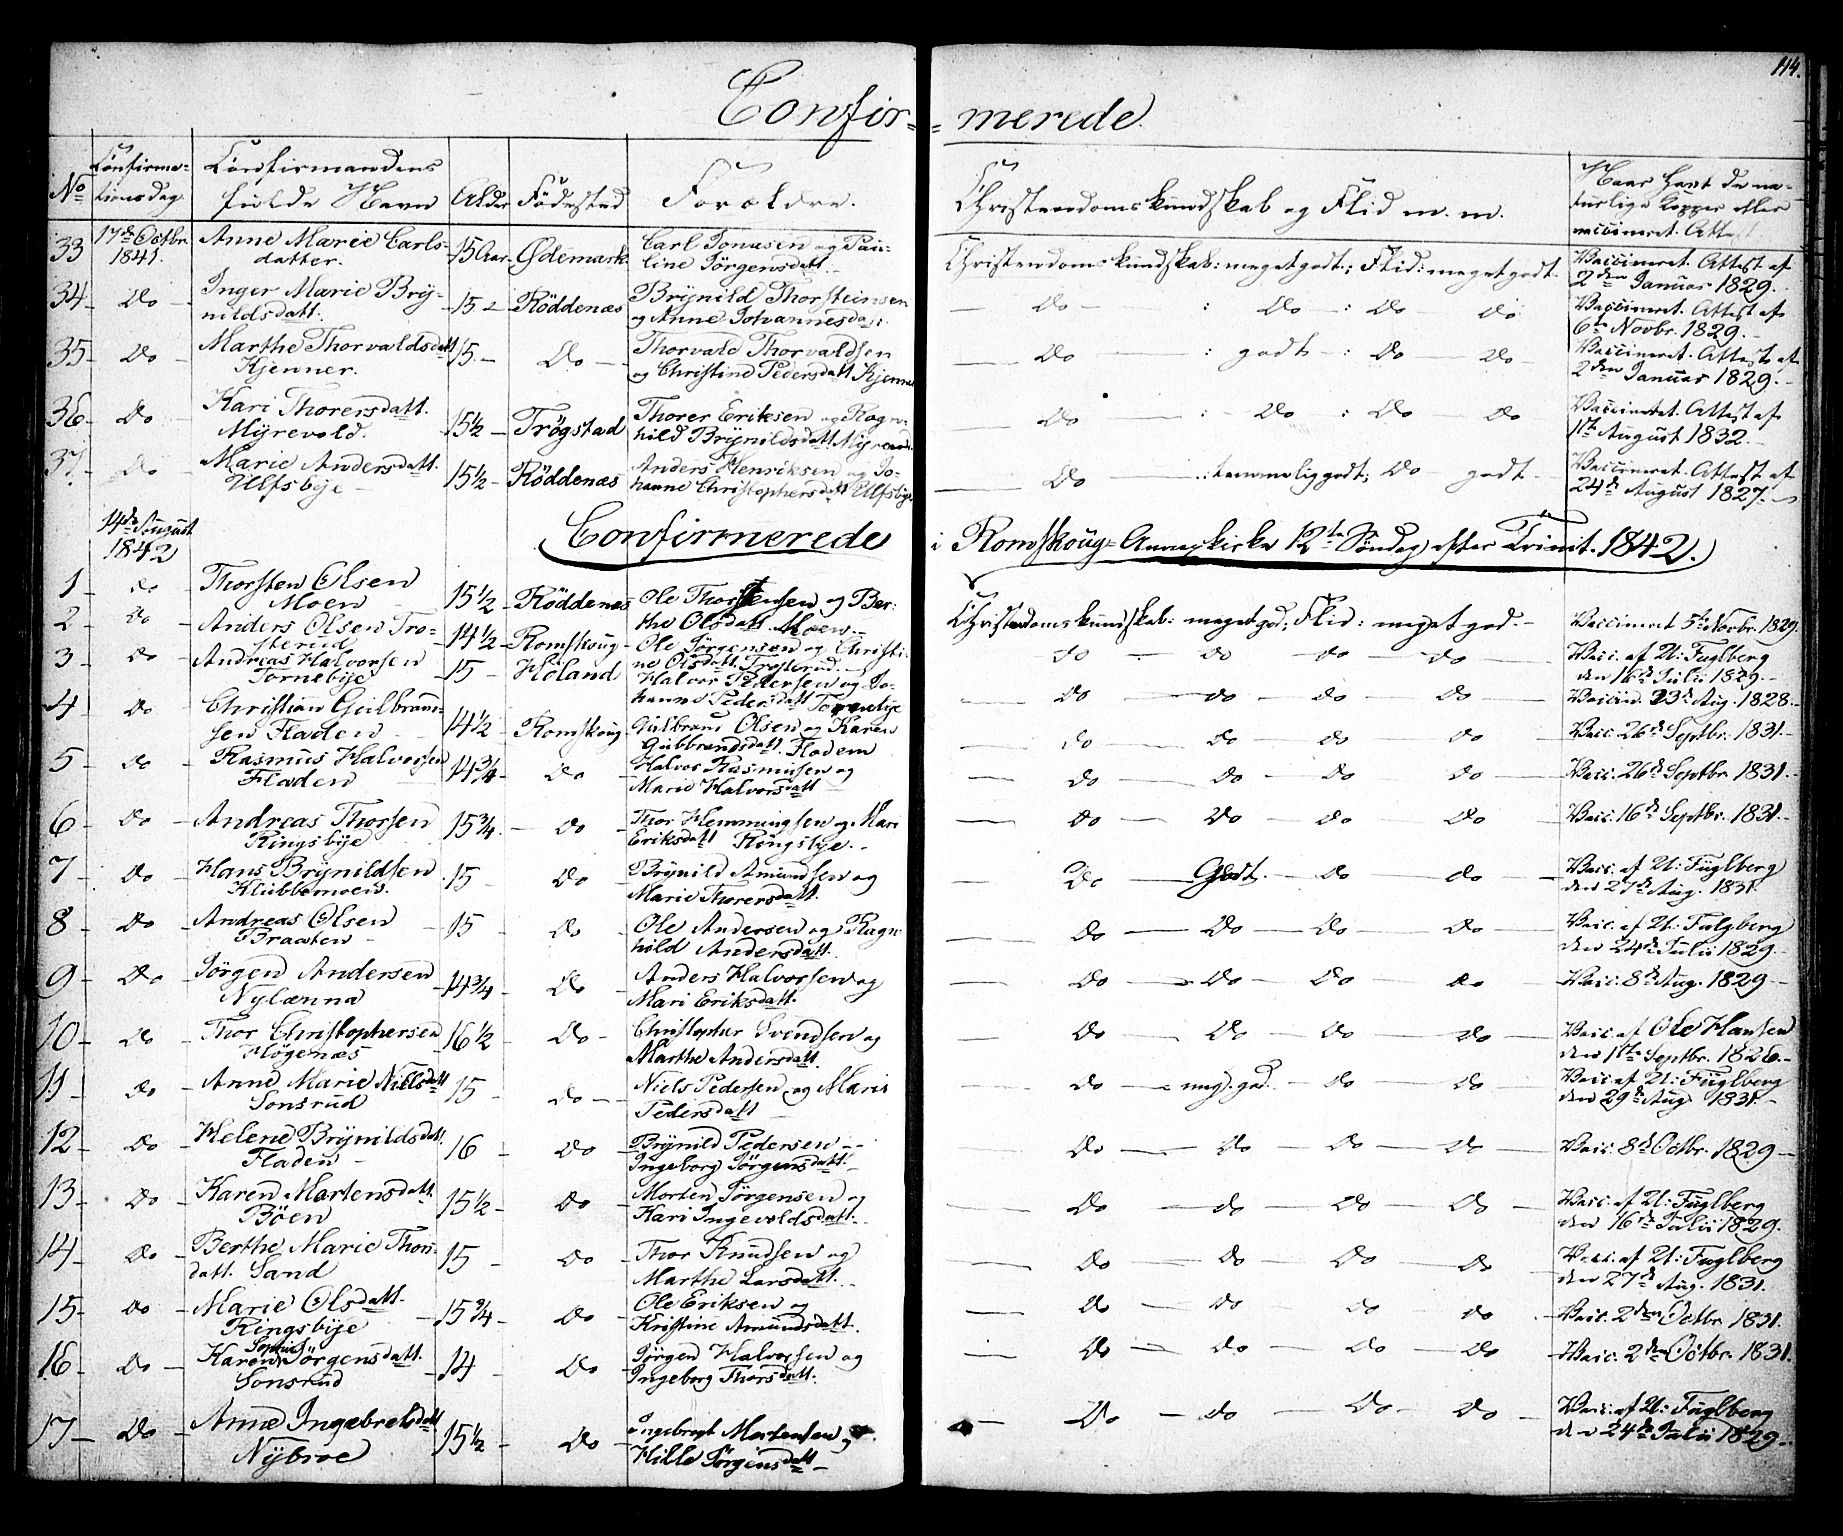 114.
Confir= =merede.
No Confirma= tionsdag. Confirmandens fulde Navn Alder Fødested Forældre. Christendomskundskab og Flid m. m. Haar havt de na= turlige Kopper eller vaccineret. Attest
33 17de Octbr. 1841. Anne Marie Carls= datter. 15 Aar Ødemark Carl Jonasen og Pau= line Jørgensdatt. Christendomskundskab: meget godt; Flid: meget godt. Vaccineret. Attest af 2den Januar 1829.
34 Do Inger Marie Bry= nildsdatt. 15 Röddenæs Brynild Thorsteinsen og Anne Johannesdatt. Do : Do : Do Do Vaccineret. Attest af 6te Novbr. 1829.
35 Do Marthe Thorvaldsdatt Kjenner. 15 Do Thorvald Thorvaldsen og Christine Pedersdatt Kjenner Do : godt : Do Do Vaccineret. Attest af 2den Januar 1829.
36 Do Kari Thorersdatt. Myrevold. 15½ Trøgstad Thorer Eriksen og Ragn= hild Brynildsdatt Myrevold Do : Do : Do Do Vaccineret. Attest af 11te August 1832.
37 Do Marie Andersdatt. Ulfsbye 15½ Röddenæs Anders Henriksen og Jo= hanne Christophersdatt Ulfsbye Do : temmelig godt; Do godt Vaccineret. Attest af 24de August 1827.
14de August 1842 Confirmerede i Romskoug=Annexkirke 12te Søndag efter Trinit. 1842.
1 do Thorsten Olsen Moen 15½ Röddenæs Ole Thorstensen og Ber= the Olsdatt. Moen. Christendomskundskab: meget god; Flid: meget god. Vaccineret 5te Novbr. 1829.
2 Do Anders Olsen Tro= sterud 14½ Romskoug Ole Jørgensen og Christi= ne Olsdatt. Trosterud. do do do do Vacc. af U: Fuglberg den 16de Julii 1829.
3 do Andreas Halvorsen Tornebye 15 Höland Halvor Pedersen og Jo= hanne Pedersdatt Tornebye Do do do do Vaccin. 23de Aug. 1828.
4 do Christian Gulbrand= sen Fladen 14½ Romskoug Gulbrand Olsen og Karen Gulbrandsdatt. Fladen do do do do Vacc. 26de Septbr. 1831.
5 do Rasmus Halvorsen Fladen 14¾ do Halvor Rasmusen og Marie Halvorsdatt do do do do Vacc. 26de Septbr. 1831.
6 do Andreas Thorsen Ringsbye 15¾ do Thor Hemmingsen og Mari Eriksdatt Ringsbye. do do do do Vacc. 16de Septbr. 1831.
7 do Hans Brynildsen Klubbemoen. 15 do Brynild Amundsen og Marie Thorersdatt. Do Godt. do do Vacc. af U: Fuglberg den 27de Aug. 1831.
8 do Andreas Olsen Braaten 15 do Ole Andersen og Ragn= hild Andersdatt. do Do Do do Vacc. af U: Fuglberg den 24de Julii 1829.
9 Do Jørgen Andersen Nylænna 14¾ do Anders Halvorsen og Mari Eriksdatt. do Do Do do Vacc. 8de Aug. 1829
10 do Thor Christophersen Høgenæs 16½ Do Christopher Svendsen og Marthe Andersdatt. do do do do Vacc. af Ole Hansen den 11te Septbr. 1826.
11 do Anne Marie Nielsdatt Sonsrud 15 do Niels Pedersen og Maria Pedersdatt do meg. god. do do Vacc. af U: Fuglberg den 29de Aug. 1831.
12 do Helene Brynildsdatt. Fladen 16 Do Brynild Pedersen Ingeborg Jørgensdatt. do do do do Vacc. 8de Octbr. 1829
13 Do Karen Martensdatt. Böen 15½ Do Morten Jørgensen og Kari Ingevoldsdatt. do do do do Vacc. af U: Fuglberg den 16de Julii 1829.
14 Do Berthe Marie Thors= datt. Sand 15 do Thor Knudsen og Marthe Larsdatt. Do do do do Vacc. af U: Fuglberg den 27de Aug. 1831.
15 do Marie Olsdatt. Ringsbye 15¾ do Ole Eriksen og Kristine Amundsdatt. do do do do Vacc. 2den Octbr. 1831.
16 do Karen Sophie Jørgensdatt. Sonsrud 14 do Jørgen Halvorsen og Ingeborg Thorsdatt. do do do do Vacc. 2den Octbr. 1831.
17 do Anne Ingebretsdatt Nybroe 15½ do Ingebregt Mortensen og Hille Jørgensdatt Do do do do Vacc. af U: Fuglberg den 24de Julii 1829.